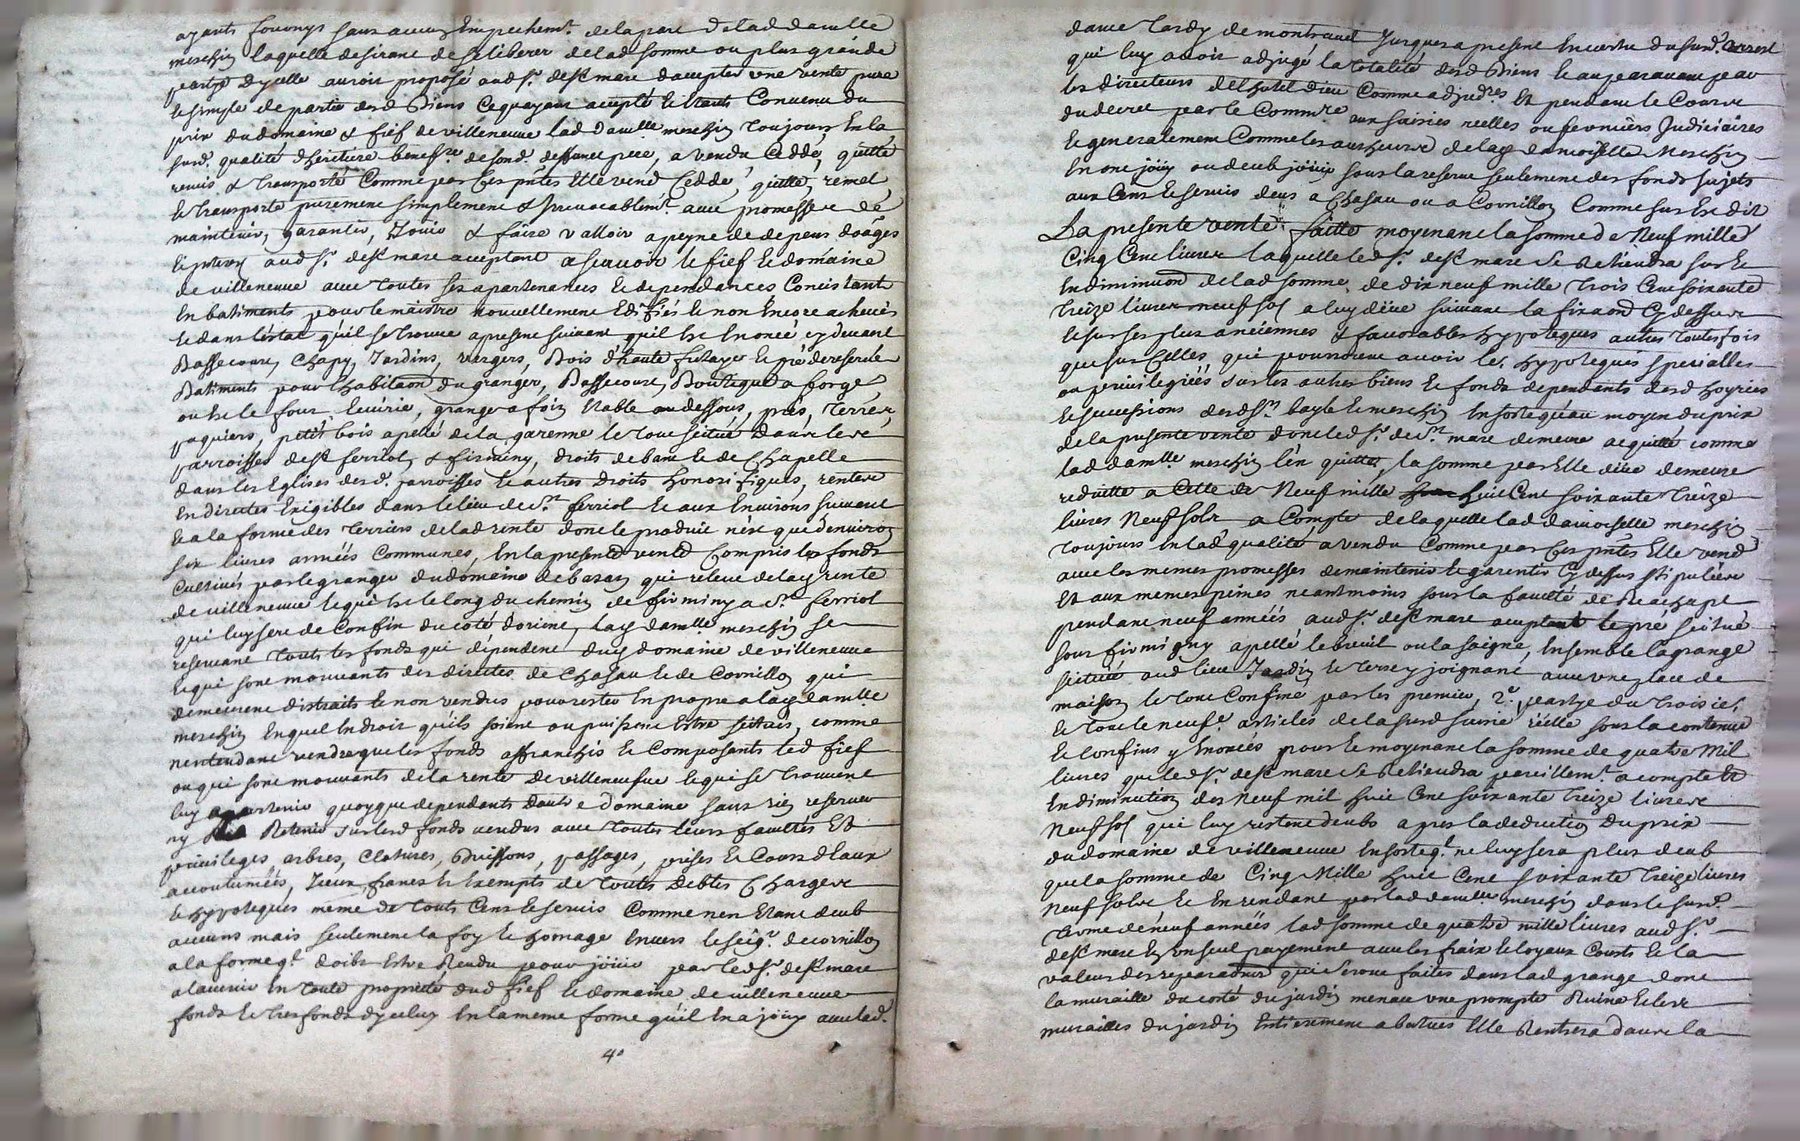 ayants fournys sans aucun Empechem.t de la part de lad damlle
meschin laquelle desirant de se liberer de lad somme ou plus grande
partye dycelle auroit proposé aud sr. de st mare daccepter une vente pure
et simple de partie desd Biens Ce quayant accepté et Etants Convenu du
prix du domaine & fief de villeneuve lad damlle meschin toujours En la
susd. qualité dheritiere benef.re de fond. deffunct pere, a vendu Ceddé, quitté
remis & transporté Comme par Ces pntes Elle vend Cedde, quitte, remet
et transporte purement simplement & Irrevocablemt. avec promesse de
maintenir, garantir, Jouir & faire valloir a peyne de depens doages
Interets aud sr. de st mare acceptant a scavoir le fief et domaine
de villeneuve avec toutes ses apartenances et dependances Concistant
En batiments pour le maistre nouvellement Edifiés et non Encore achevés
et dans l'estat qu'il se trouve a present suivant quil Est Enoncé cy devant
Bassecour, Chapy, Jardins, vergers, Bois d'haute futaye et pré de reserve
Batiments pour l'habitaon du granger, Bassecour, Boutique a forge
ou Est le four Ecurie, grange a foin Etable au dessous, prés, terres,
paquiers, petit bois apellé de la garenne le tout scitué dans les
parroisses de st ferriol & firminy, droits de banc et de Chapelle
dans les Eglises desd. parroisses et autres droits honorifiques, rentes
En directes Exigibles dans le lieu de st. ferriol et aux Environs suivant
et a la forme des terriers de lad rente dont le produit n'est que d'environ
six livres années Communes, En la presente vente Compris les fonds
Cultivés par le granger du domaine de bazan qui releve de lad rente
de villeneuve et qui Est le long du chemin de firminy a st. ferriol
qui luy sert de Confin du coté d'orient, lad damlle. meschin se
reservant touts les fonds qui dependent dud domaine de villeneuve
et qui sont mouvants des directes de Chasau et de Cornillon qui
demeurent distraits et non vendus pour rester En propre a lad damlle
meschin En quel Endroit qu'ils soient ou puissent Estre scitués, comme
n'entendant vendre que les fonds affranchis et Composants led fief
ou qui sont mouvants de la rente de villeneufve et qui se trouvent
luy apartenir quoyque dependants d'autre domaine sans rien reserver
ny Retenir sur lesd fonds vendus avec toutes leurs facultés Et
privileges arbres, Clotures, Buissons, passages, prises et Cours d'Eaux
accoutumées, Iceux francs et Exempts de toutes debtes Charges
et hypoteques meme de touts Cens et servis Comme n'en Etant deub
aucuns mais seulement la foy et homage Envers le seigr. de cornillon
a la forme qt. doibt Estre Rendu pour jouir par led sr. de st mare
a l'avenir En toute proprieté dud fief et domaine de villeneuve
fonds et tres fonds dyceluy En la meme forme qu'il En a joüy avec lad.
4e
dame tardy de montravel Jusques a present En vertu du susd.
qui luy avoit adjugé la totalité desd Biens et auparavant par
les directeurs de l'hotel dieu Comme adjud.res Et pendant le Cours
du decret par le Commre aux saisies reelles ou fermiers Judiciaires
et generalement Comme les autheurs de lad damoiselle Meschin
En ont joüy ou deub joüir sous la reserve seulement des fonds sujets
aux Cens et servis deus a Chasau ou a Cornillon Comme sus Est dit
La presente vente faitte moyenant la somme de Neuf mille
Cinq Cent livres laquelle led sr. de st mare se Retiendra sur Et
En diminuon de lad somme de dix neuf mille trois Cent soixante
treize livres neuf sol a luy düe suivant la fixaon Cy dessus
et sur ses plus anciennes & favorables hypoteques autres toutes fois
que sur Celles qui pourroient avoir les hypoteques specialles
ou privilegiées sur les autres biens et fonds dependants desd hoyries
et successions desd srs. bayle et meschin En sorte qu'au moyen du prix
de la presente vente dont led sr. de st. mare demeure acquitté comme
lad damlle. meschin l'en quitte, la somme par Elle düe demeure
reduitte a Celle de Neuf mille huit Cent soixante treize
livres Neuf sols a Compte de laquelle lad damoiselle meschin
toujours En lad qualité a vendu Comme par Ces pntes Elle vend
avec les memes promesses de maintenir et garentir Cy dessus stipulées
Et aux memes peines neantmoins sous la faculté de Reachapt
pendant neuf années aud sr. de st mare acceptant le pré scitué
sous firmigny apellé le breuil ou la saigne, Ensemble la grange
scituée aud lieu Jardin et terre y joignant avec une place de
maison le tout Confiné par les premier, 2e. partye du troisie.
et tout le neufe. articles de la susd saisie réelle sous la contenue
et Confins y Enoncés pour et moyenant la somme de quatre Mil
livres que led sr. de st mare se Retiendra pareillemt. a compte Et
En diminution des Neuf mil huit Cent soixante treize livres
Neuf sol qui luy restent deubs apres la deduction du prix
du domaine de villeneuve En sorte q. ne luy sera plus deub
que la somme de Cinq Mille huit Cent soixante treize livres
Neuf sols et En rendant par lad damlle meschin dans le susd.
terme de neuf années lad somme de quatre mille livres aud sr.
de st mare En un seul payement avec les fraix et loyaux Couts et la
valeur des reparaons qui seront faites dans lad grange dont
la muraille du coté du jardin menace une prompte Ruine et les
murailles du jardin Entierement abatues Elle Rentrera dans la